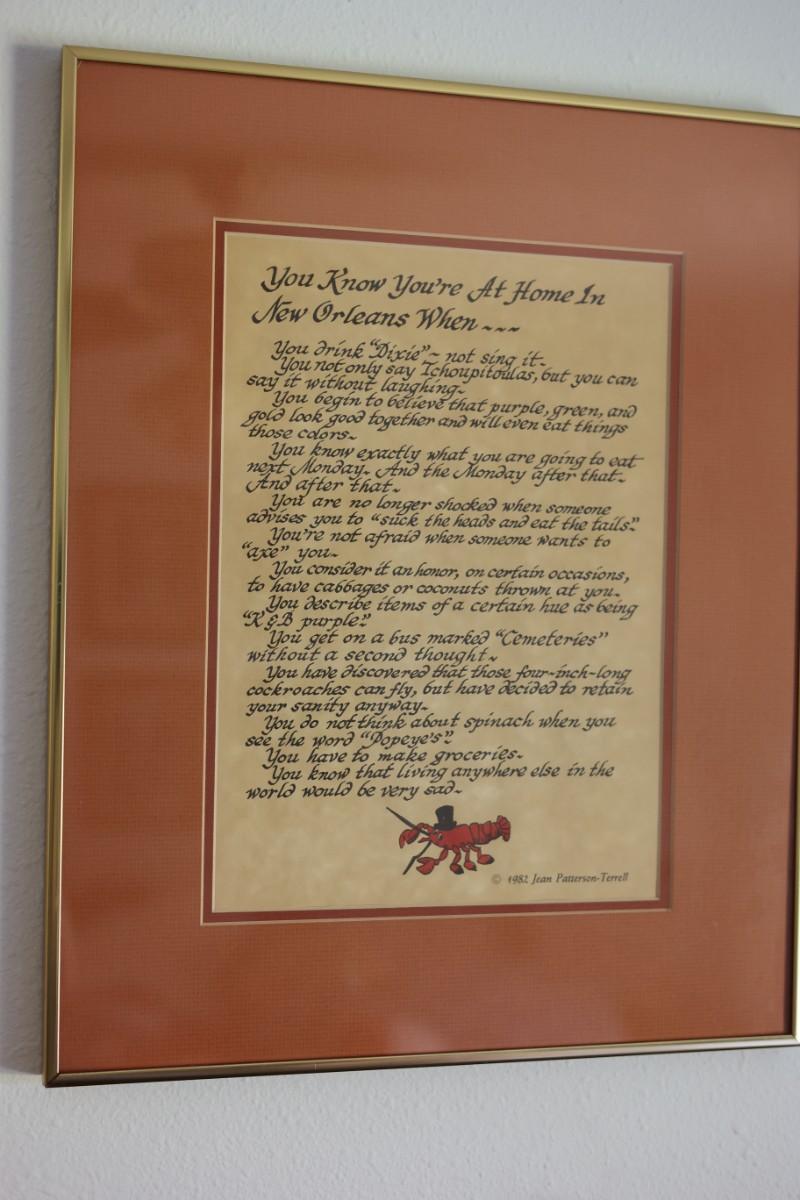 You Know You're At Home In
New Orleans When ~~~
You drink "Dixie"~ not sing it~
You not only say Tchoupitoulas, but you can
say it without laughing~
You begin to believe that purple, green, and
gold look good together and will even eat things
those colors~
You know exactly what you are going to eat
next Monday~ And the Monday after that~
And after that~
You are no longer shocked when someone
advises you to "suck the heads and eat the tails."
You're not afraid when someone wants to
"axe" you~
You consider it an honor, on certain occasions,
to have cabbages or coconuts thrown at you~
You describe items of a certain hue as being
"K&B purple."
You get on a bus marked "Cemeteries"
without a second thought~
You have discovered that those four-inch-long
cockroaches can fly, but have decided to retain
your sanity anyway~
You do not think about spinach when you
see the word "Popeye's".
You have to make groceries~
You know that living anywhere else in the
world would be very sad~
© 1982 Jean Patterson-Terrell